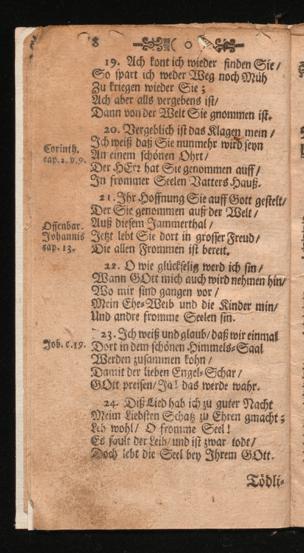 8
19. Ach kont ich wieder finden Sie/
So spart ich weder Weg noch Müh
Zu kriegen wieder Sie;
Ach aber alls vergebens ist/
Dann von der Welt Sie gnommen ist.
20. Vergeblich ist das Klagen mein/
Ich weiß daß Sie nunmehr wird seyn
An einem schönen Ohrt/
Der HErz hat Sie genommen auff/
In frommer Seelen Vatters Hauß.
Corinth.
cap. 2. v. 9.
21. Ihr Hoffnung Sie auff Gott gestelt/
Der Sie genommen auß der Welt/
Auß diesem Jammerthal/
Jetzt lebt Sie dort in grosser Freud/
Die allen Frommen ist bereit.
Offenbar.
Johannis
cap. 13.
22. O wie glückselig werd ich sin/
Wann GOtt mich auch wird nehmen hin/
Wo mir sind gangen vor/
Mein Ehe-Weib und die Kinder min/
Und andre fromme Seelen sin.
23. Ich weiß und glaub/ daß wir einmal
Dort in dem schönen Himmels-Saal
Werden zusammen kohn/
Damit der lieben Engel-Schar/
GOtt preisen/ Ja! das werde wahr.
Job. c. 19.
24. Diß Lied hab ich zu guter Nacht
Meim Liebsten Schatz zu Ehren gmacht;
Leb wohl/ O fromme Seel!
Es fault der Leib/ und ist zwar todt/
Doch lebt die Seel bey Ihrem GOtt.
Tödli-